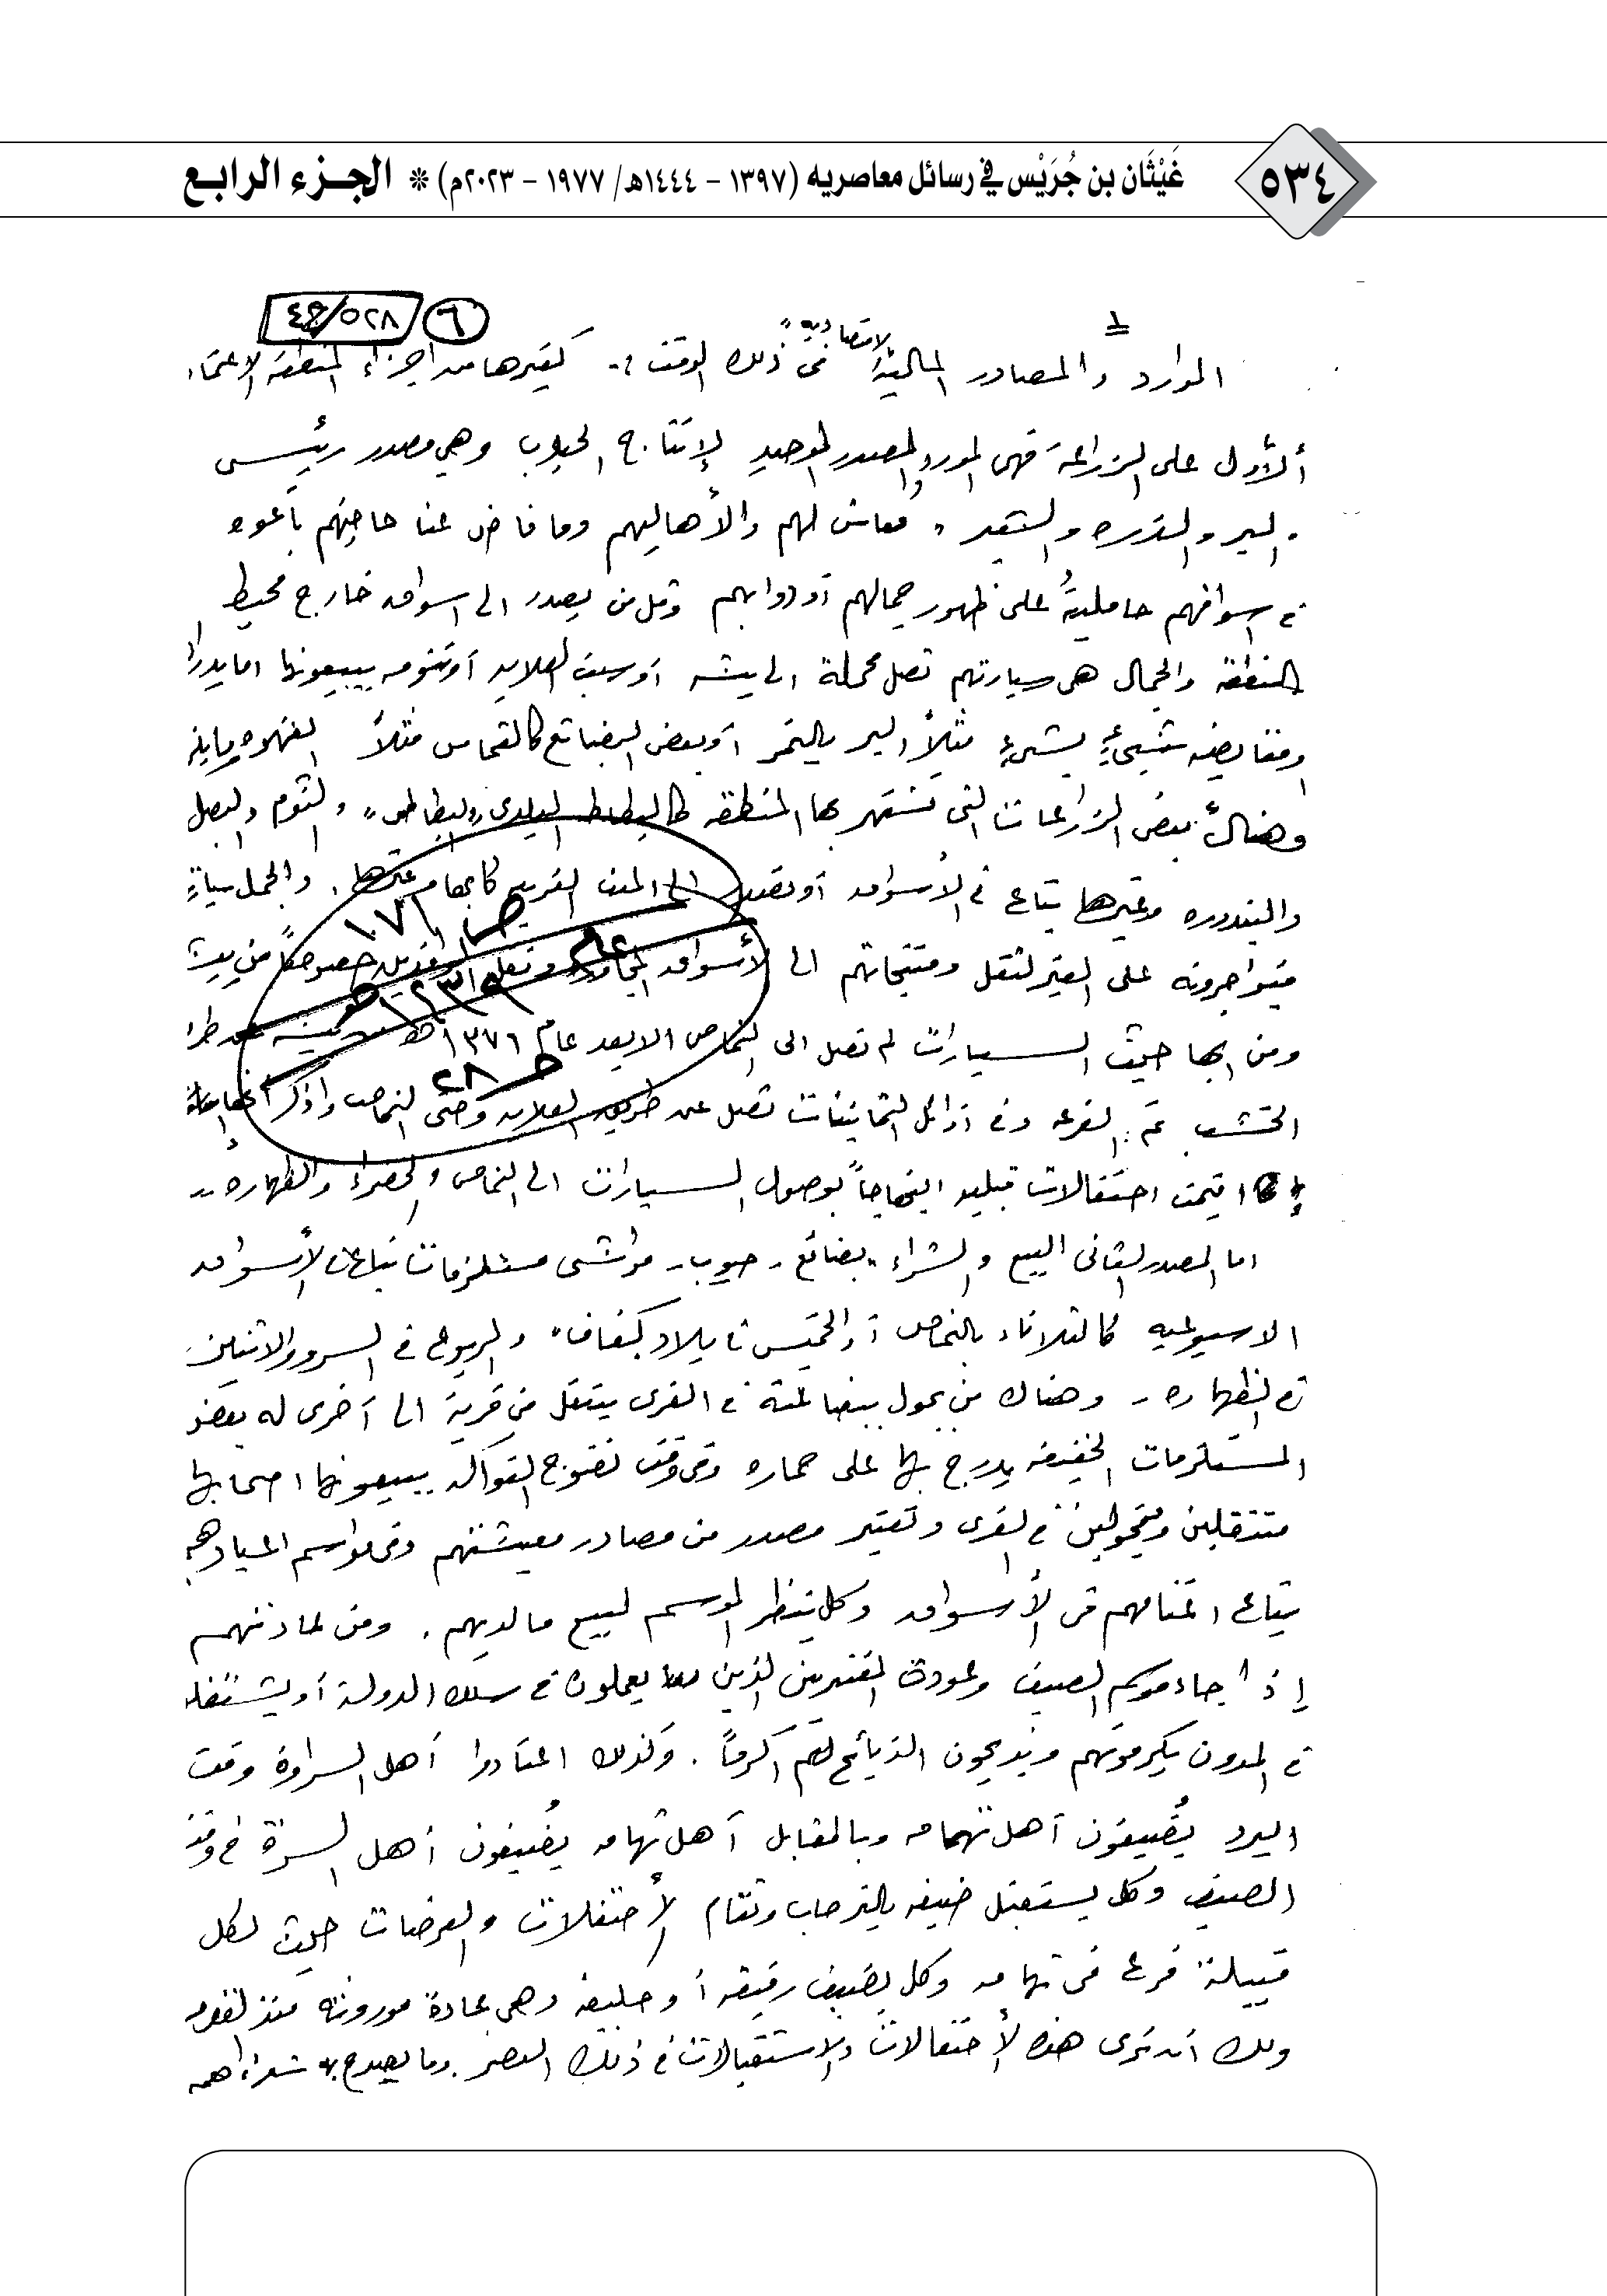 ٥٣٤
غَيْثَان بن جُرَيْس في رسائل معاصريه (١٣٩٧ - ١٤٤٤هـ/ ١٩٧٧ - ٢٠٢٣م) * الجزء الرابع
٦
الموارد والمصادر المالية "الاقتصادية" في ذلك الوقت :- كغيرها من اجزاء المنطقة الاعتماد
ألأول على الزراعة فهي المورد والمصدر الوحيد لإنتاج الحبوب وهي مصدر رئيسي
"البر والذره والشعير" معاش لهم والأهاليهم وما فاض عنا حاجتهم باعوه
في اسواقهم حاملينهُ على ظهور جمالهم أو دوابهم وقل من يصدر الى اسواق خارج محيط
المنطقة والجمال هي سيارتهم تصل محملة الى بيشه أو سبت العلايه أو تنومه يبيعونها اما بدرا
او مقايضه شيءٍ بشيءٍ مثلاً البر بالتمر أو بعض البضائع كالقماس مثلاً القهوه
وهناك بعض الزراعات التي تشتهر بها المنطقه كالبطاط البلدي والثوم والبصل
والبندوره وغيرها يباع في الأسواق أو تصدر الى المدن القريبه كابها وغيرها. والجمل سيارةٍ
فيتواجرونه على العير لنقل ومنتجاتهم الى الأسواق خصوصاً من بيشه
ومن ابها حيث السيارات لم تصل الى النماص الا بعد عام ١٣٧٦هـ
ص ٢٨
الخشب ثم الفرعه وفي أوائل الثمانينات تصل عن طريق العلايه وحتى النماص واذكر
اقيمت احتفالات قبليه ابتهاجاً بوصول السيارات الى النماص والخضراء والظهاره ..
اما المصدر الثاني البيع والشراء "بضائع - حبوب - مواشى مستلزمات تباع في الأسواق
الاسبوعيه كالثلاثاء بالنماص أو الخميس في بلاد كنفاف" والربوع في السرو والاثنين
في الظهاره - وهناك من يجول ببضائعه في القرى يتنقل من قرية الى أخرى له بعض
المستلزمات الخفيفه يدرج بها على حماره وفي وقت نضوج الفواكه يبيعونها اصحابها
متنقلين ومتجولين في القرى وتعتبر مصدر من مصادر معيشتهم وفي مواسم
يباع اغنامهم في الأسواق وكل ينتظر الموسم لبيع ما لديهم. ومن عادتهم
إذا جاء موسم الصيف وعودة المغتربين الذين يعملون في سلك الدولة أو يشتغلو
في المدن يكرمونهم ويذبحون الذبائح لهم اكرماً. وكذلك اعتادوا أهل السراوة وقت
البرد يُضيفون أهل تهامه وبالمقابل أهل تهامه يُضيفون أهل السراة في وقت
الصيف وكل يستقبل ضيفه بالترحاب وتقام الأحتفلات والعرضات حيث لكل
قبيلة فرع في تهامه وكل يضيف رفيقه أو حليفه وهي عادة موروثه منذ القدم
ولك أن ترى هذه الأحتفالات والاستقبالات في ذلك العصر. وما يصدح به شعراهم